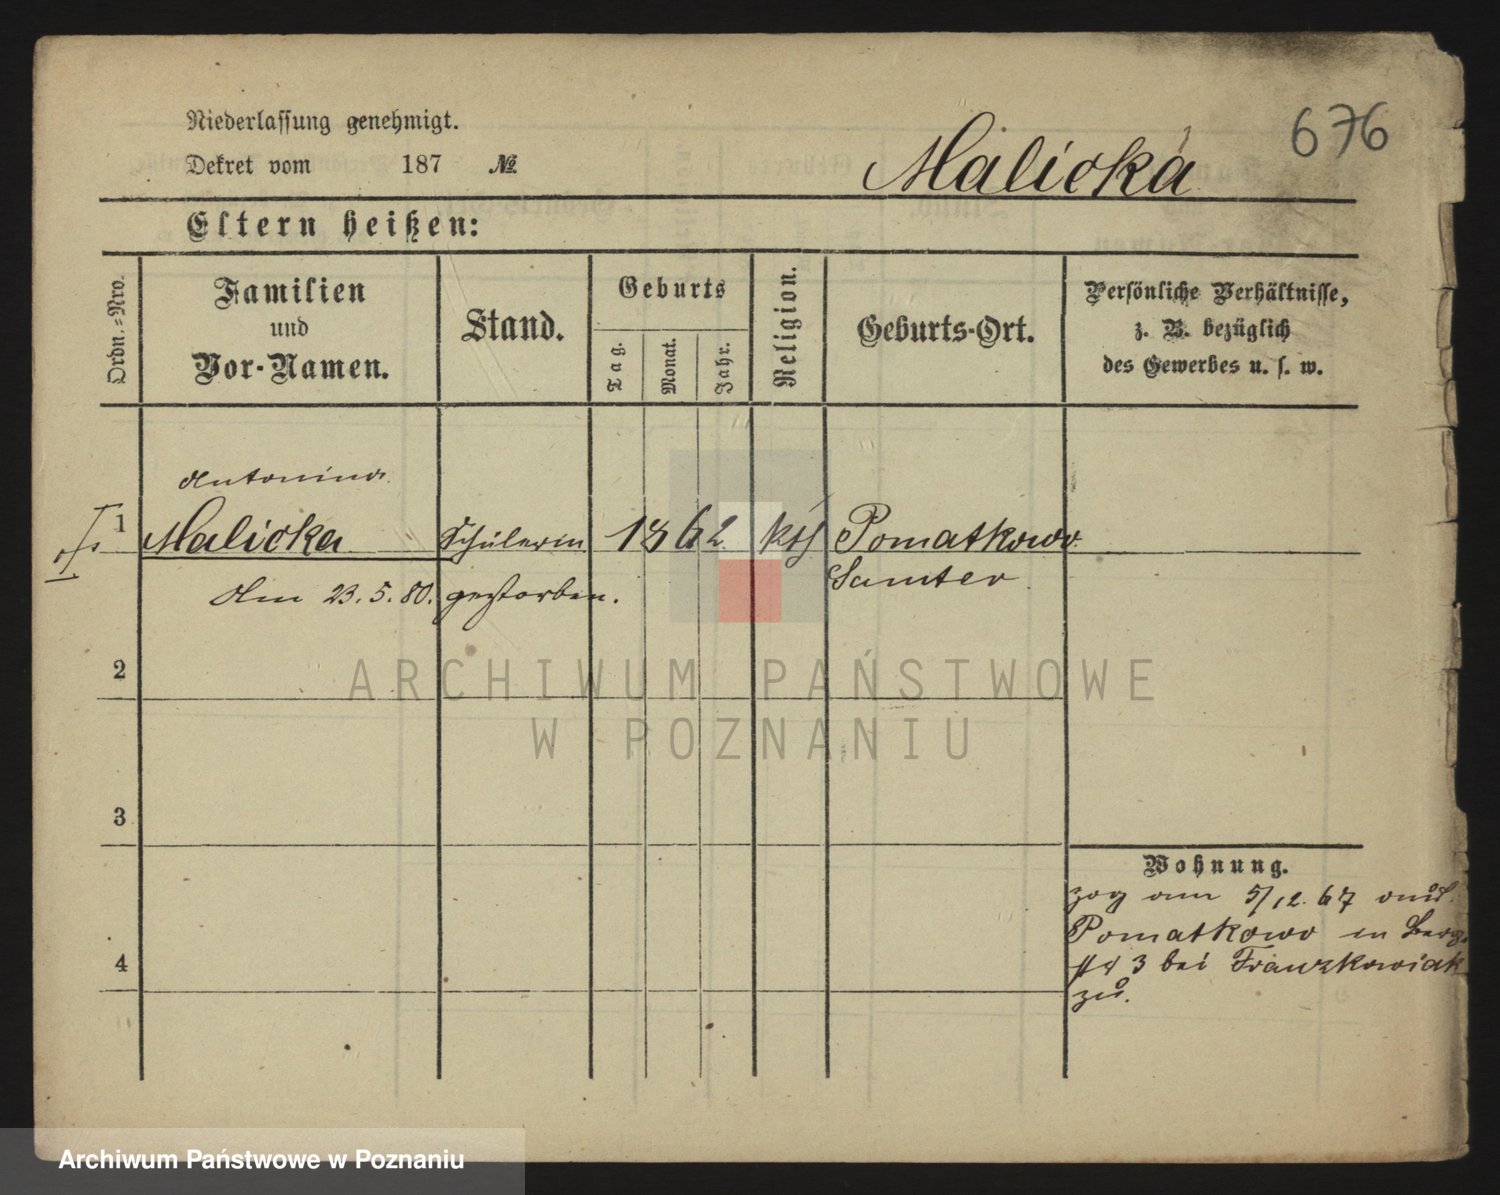 Niederlassung genehmigt.
676
Dekret vom 187 №
Malicka
Eltern heißen:
Ordn.-Nro.
Familien
und
Vor-Namen.
Stand.
Geburts
Tag.
Monat.
Jahr.
Religion.
Geburts-Ort.
Persönliche Verhältnisse,
z. B. bezüglich
des Gewerbes u. s. w.
Antonina
1 Malicka Schülerin 1862 kth Pomatkowo
Samter
Am 23.5.80. gestorben.
2
3
4
Wohnung.
zog am 5/12.67 aus
Pomatkowo in Berg
3 bei Franzkowiak
zu.
ARCHIWUM PAŃSTWOWE
W POZNANIU
Archiwum Państwowe w Poznaniu